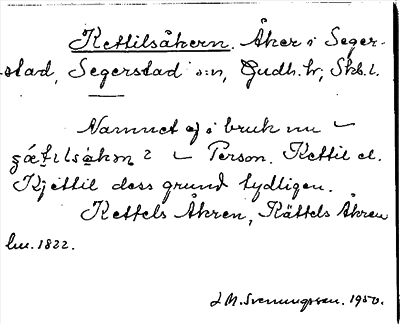 Kettilsåkern. Åker i Seger-
stad, Segerstad s:n, Gudh. hr, Skb. l.
Namnet ej i bruk nu –
Person. Kettil el.
Kjettil dess grund tydligen.
Kettels Åkren, Kättels Åkren
lm. 1822.
J. M. Svenungsson. 1950.